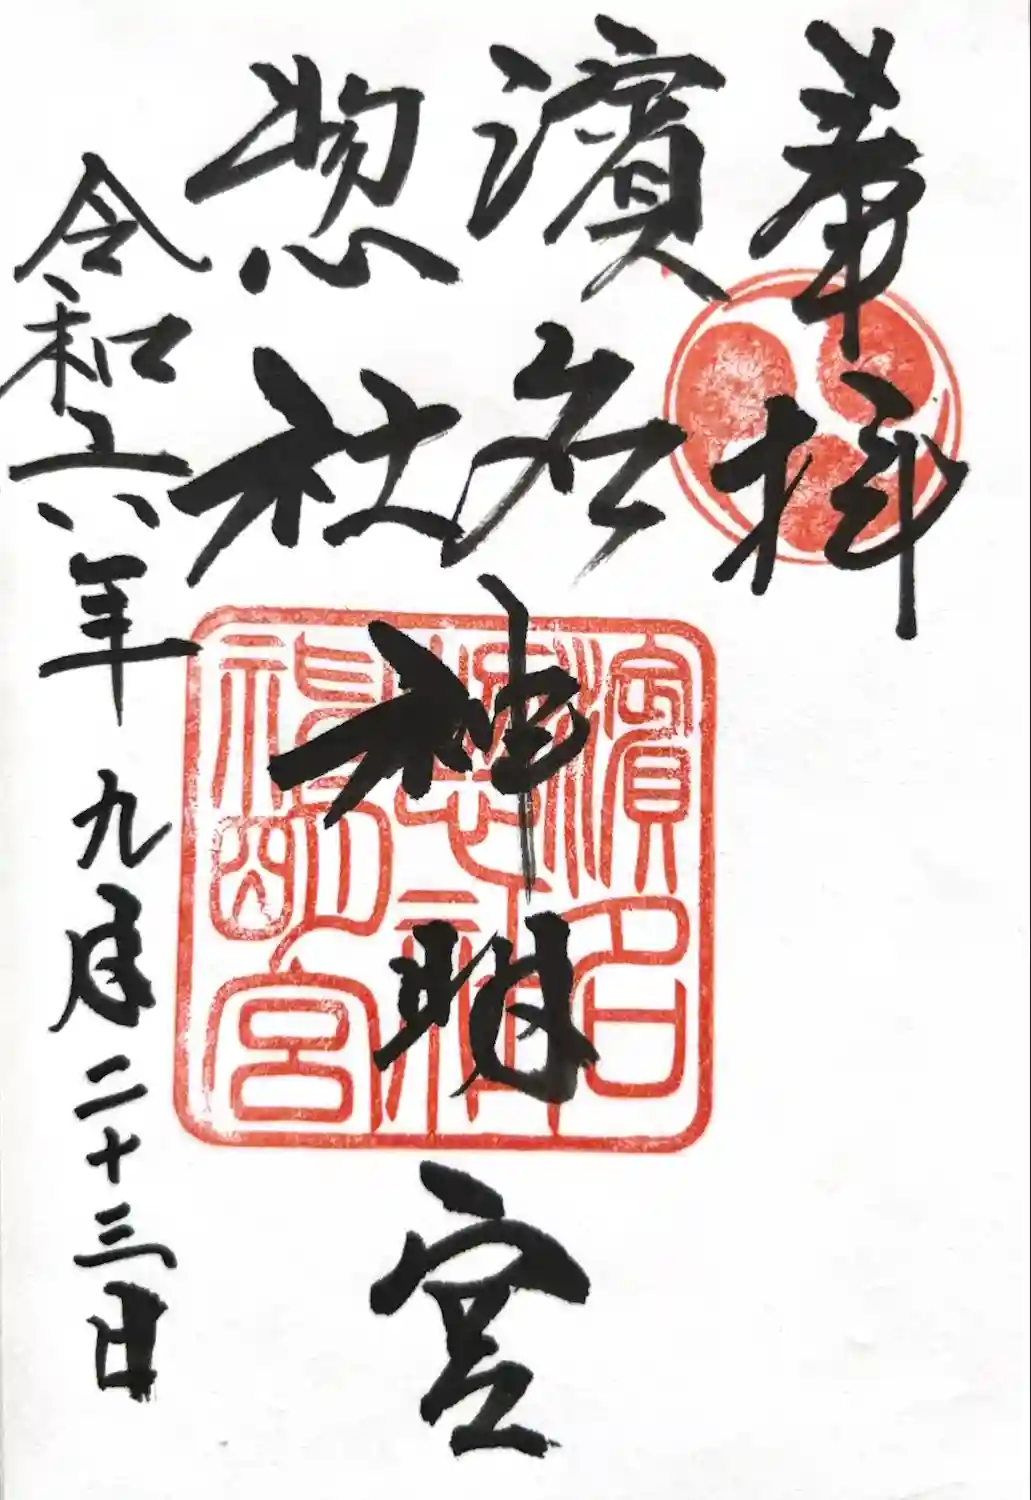 奉拝
濱名
惣社
神明宮
令和六年九月二十三日
濱名
惣社
神明宮